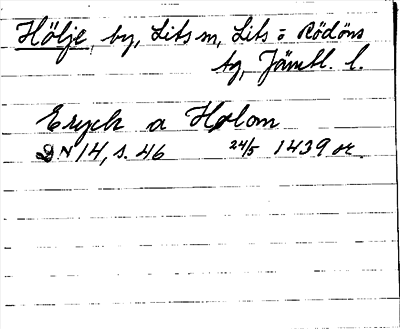 Hölje, by, Lits sn, Lits o Rödöns
tg, Jämtl. l.
Eryck a Holom
DN 14, s. 46 24/5 1439 or.